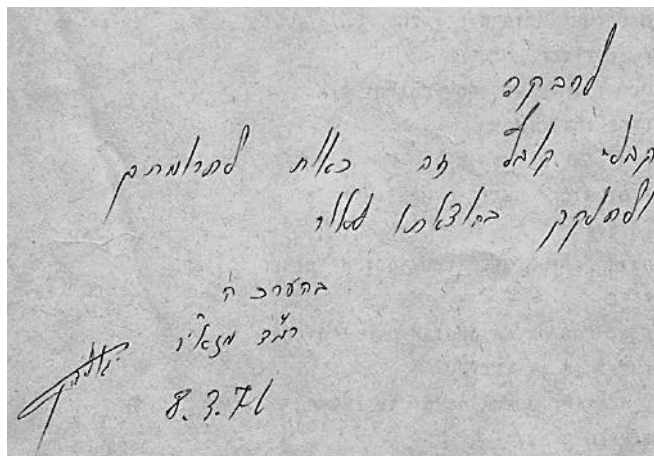 לרבקה
קבלי קובץ זה כאות לתרומתך
ולחלקך בהוצאתו לאור
בהערכה
רמ"ד
8.3.71